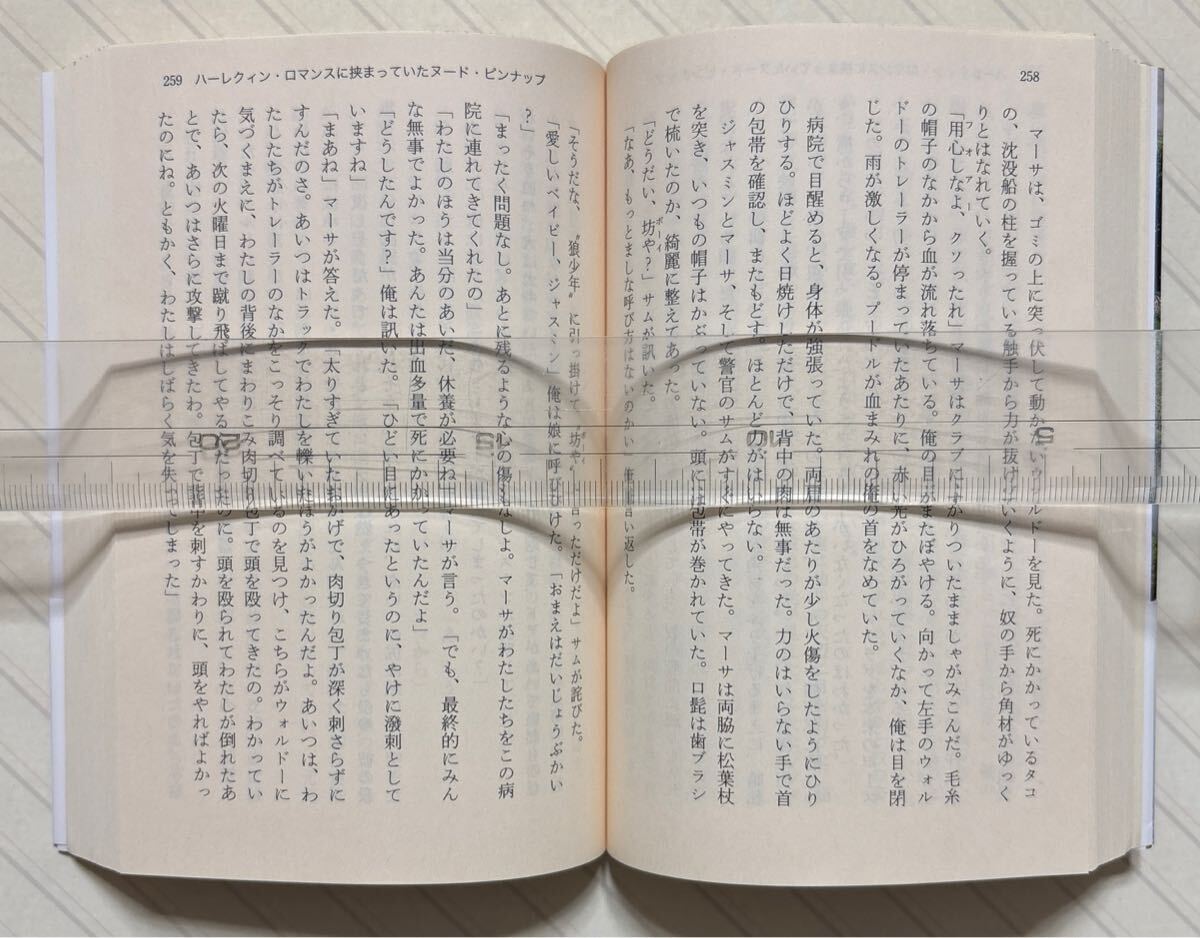 258
マーサは、ゴミの上に突っ伏して動かないウォルドーを見た。死にかかっているタコ
の、沈没船の柱を握っている触手から力が抜けていくように、奴の手から角材がゆっく
りとはなれていく。
「用心しなよ、クソったれ」マーサはクラブにすがりついたまましゃがみこんだ。毛糸
フォアー
の帽子のなかから血が流れ落ちている。俺の目がまたぼやける。向かって左手のウォル
ドーのトレーラーが停まっていたあたりに、赤い死がひろがっていくなか、俺は目を閉
じた。雨が激しくなる。プードルが血まみれの俺の首をなめていた。
病院で目醒めると、身体が強張っていた。両肩のあたりが少し火傷をしたようにひり
ひりする。ほどよく日焼けしただけで、背中の肉は無事だった。力のはいらない手で首
の包帯を確認し、またもどす。ほとんど力がはいらない。
ジャスミンとマーサ、そして警官のサムがすぐにやってきた。マーサは両脇に松葉杖
を突き、いつもの帽子はかぶっていない。頭には包帯が巻かれていた。口髭は歯ブラシ
で梳いたのか、綺麗に整えてあった。
「どうだい、坊や?」サムが訊いた。
ボーイ
「なあ、もっとましな呼び方はないのかい」俺は言い返した。
259 ハーレクィン・ロマンスに挟まっていたヌード・ピンナップ
「そうだな、〝狼少年〟に引っ掛けて〝坊や〟言っただけだよ」サムが詫びた。
「愛しいベイビー、ジャスミン」俺は娘に呼びかけた。「おまえはだいじょうぶかい
?」
「まったく問題なし。あとに残るような心の傷もなしよ。マーサがわたしたちをこの病
院に連れてきてくれたの」
「わたしのほうは当分のあいだ、休養が必要ね」マーサが言う。「でも、最終的にみん
な無事でよかった。あんたは出血多量で死にかかっていたんだよ」
「どうしたんです?」俺は訊いた。「ひどい目にあったというのに、やけに潑剌として
いますね」
「まあね」マーサが答えた。「太りすぎていたおかげで、肉切り包丁が深く刺さらずに
すんだのさ。あいつはトラックでわたしを轢いたほうがよかったんだよ。あいつは、わ
たしたちがトレーラーのなかをこっそり調べているのを見つけ、こちらがウォルドーに
気づくまえに、わたしの背後にまわりこみ肉切り包丁で頭を殴ってきたの。わかってい
たら、次の火曜日まで蹴り飛ばしてやるだったのに。頭を殴られてわたしが倒れたあ
とで、あいつはさらに攻撃してきたわ。包丁で背中を刺すかわりに、頭をやればよかっ
たのにね。ともかく、わたしはしばらく気を失ってしまった」